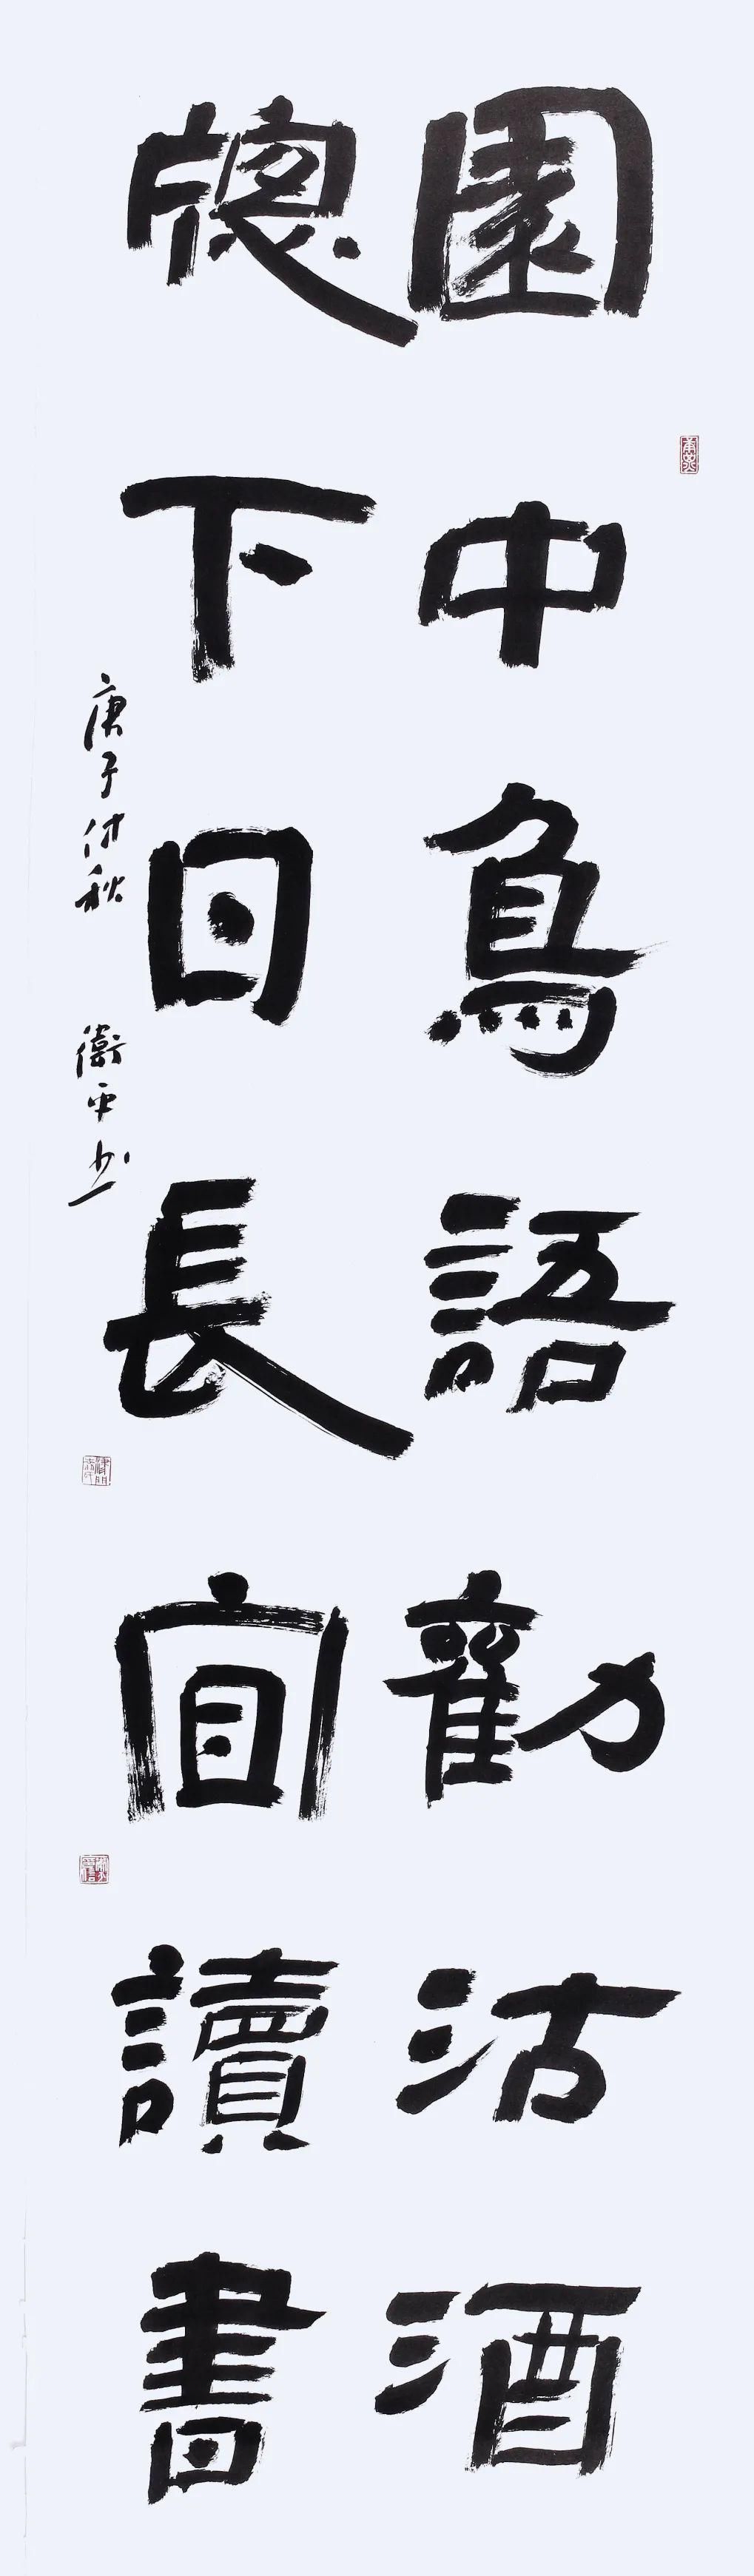 園中鳥語勸沽酒
牕下日長宜讀書
庚子仲秋 衛平书